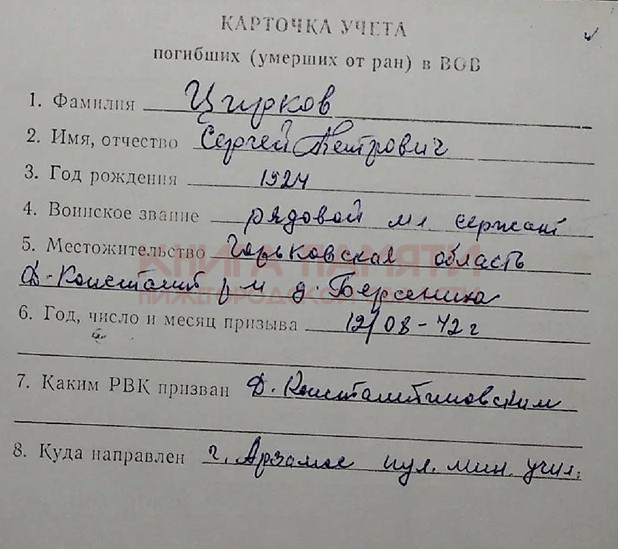 КАРТОЧКА УЧЕТА
погибших (умерших от ран) в ВОВ
1. Фамилия Цирков
2. Имя, отчество Сергей Петрович
3. Год рождения 1924
4. Воинское звание рядовой мл сержант
5. Местожительство Горьковская область
Д-Констант р-н д. Берсениха
КНИГА ПАМЯТИ
НИЖЕГОРОДСКОЙ ОБЛАСТИ
6. Год, число и месяц призыва 12/08-42 г
7. Каким РВК призван Д. Константиновским
8. Куда направлен г. Арзамас пул. мин. учил.